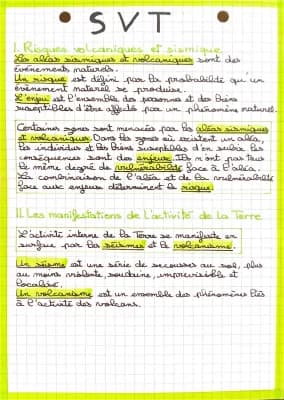 SVT
I. Risques volcaniques et sismique
Les aléas sismiques et volcaniques sont des
événements naturels.
Un risque est défini par la probabilité qu'un
événement naturel se produise.
L'enjeu est l'ensemble des personnes et des biens
susceptibles d'être affecté par un phénomène naturel.
Certaines zones sont menacées par les aléas sismiques
et volcaniques. Dans les zones où existent un aléa,
les individus et les biens susceptibles d'en subir les
conséquences sont des enjeux. Ils n'ont pas tous
le même degré de vulnérabilité face à l'aléa.
La combinaison de l'aléa et de la vulnérabilité
face aux enjeux déterminent le risque.
II. Les manifestations de l'activité de la Terre
L'activité interne de la Terre se manifeste en
surface par les séismes et le volcanisme.
Un séisme est une série de secousses au sol, plus
ou moins violente, soudaine, imprévisible et
localisée.
Un volcanisme est un ensemble des phénomènes liés
à l'activité des volcans.